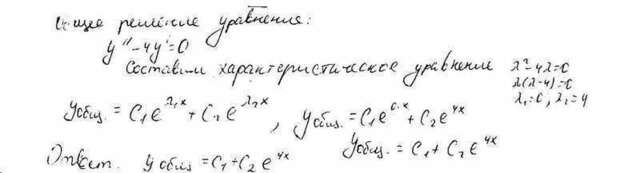 общее решение уравнения:
y''-4y'=0
Составим характеристическое уравнение λ²-4λ=0
λ(λ-4)=0
λ₁=0, λ₂=4
Yобщ.=C₁e^λ₁x+C₂e^λ₂x, Yобщ.=C₁e^0·x+C₂e^4x
Yобщ.=C₁+C₂e^4x
Ответ. Yобщ=C₁+C₂e^4x